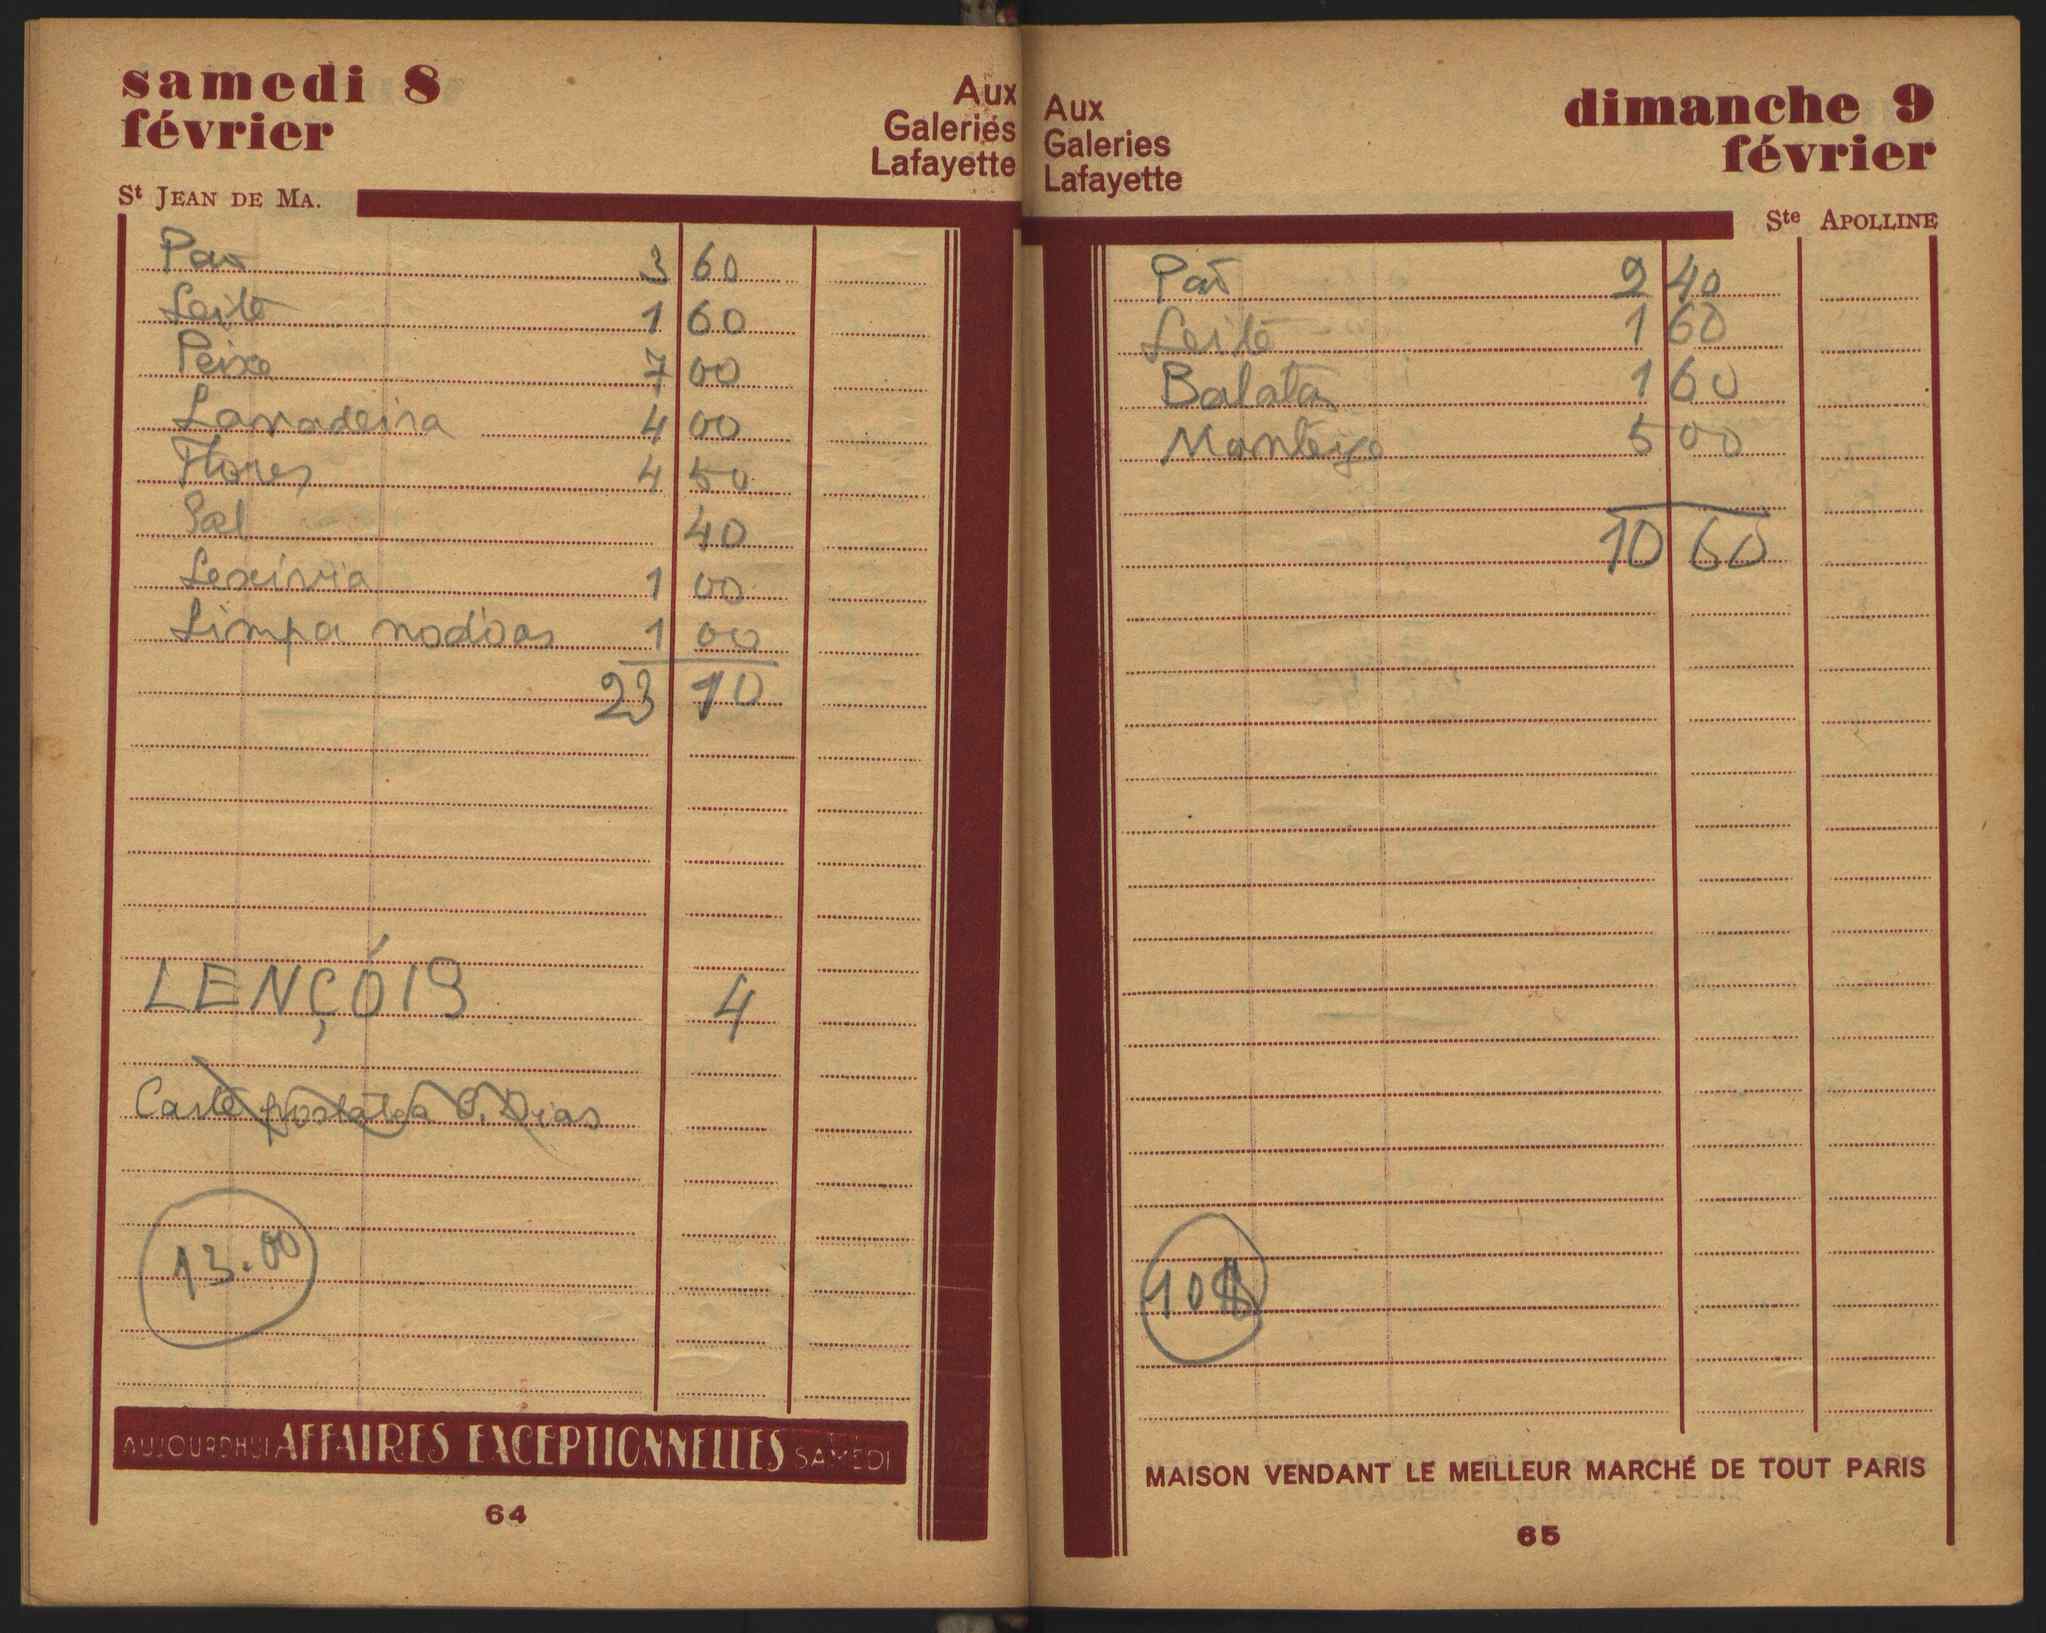 samedi 8
février
Aux
Galeries
Lafayette
St JEAN DE MA.
Pao 3 60
Leite 1 60
Peixe 7 00
Lavadeira 4 00
Flores 4 50
Sal 40
Lexivia 1 00
Limpa nodoas 1 00
23 10
LENÇÓIS 4
Carte postales C. Dias
13.00
AUJOURDHUI AFFAIRES EXCEPTIONNELLES SAMEDI
64
Aux
Galeries
Lafayette
dimanche 9
février
Ste APOLLINE
Pão 2 40
Leite 1 60
Batatas 1 60
Manteiga 5 00
10 60
10$
MAISON VENDANT LE MEILLEUR MARCHÉ DE TOUT PARIS
65